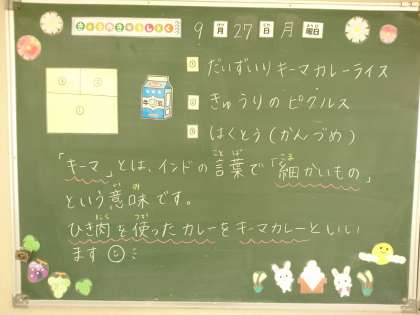 きょうのきゅうしょく
9月27日月曜日
① だいずいりキーマカレーライス
② きゅうりのピクルス
③ はくとう(かんづめ)
「キーマ」とは、インドの言葉で「細かいもの」
という意味です。
ひき肉を使ったカレーをキーマカレーといい
ます